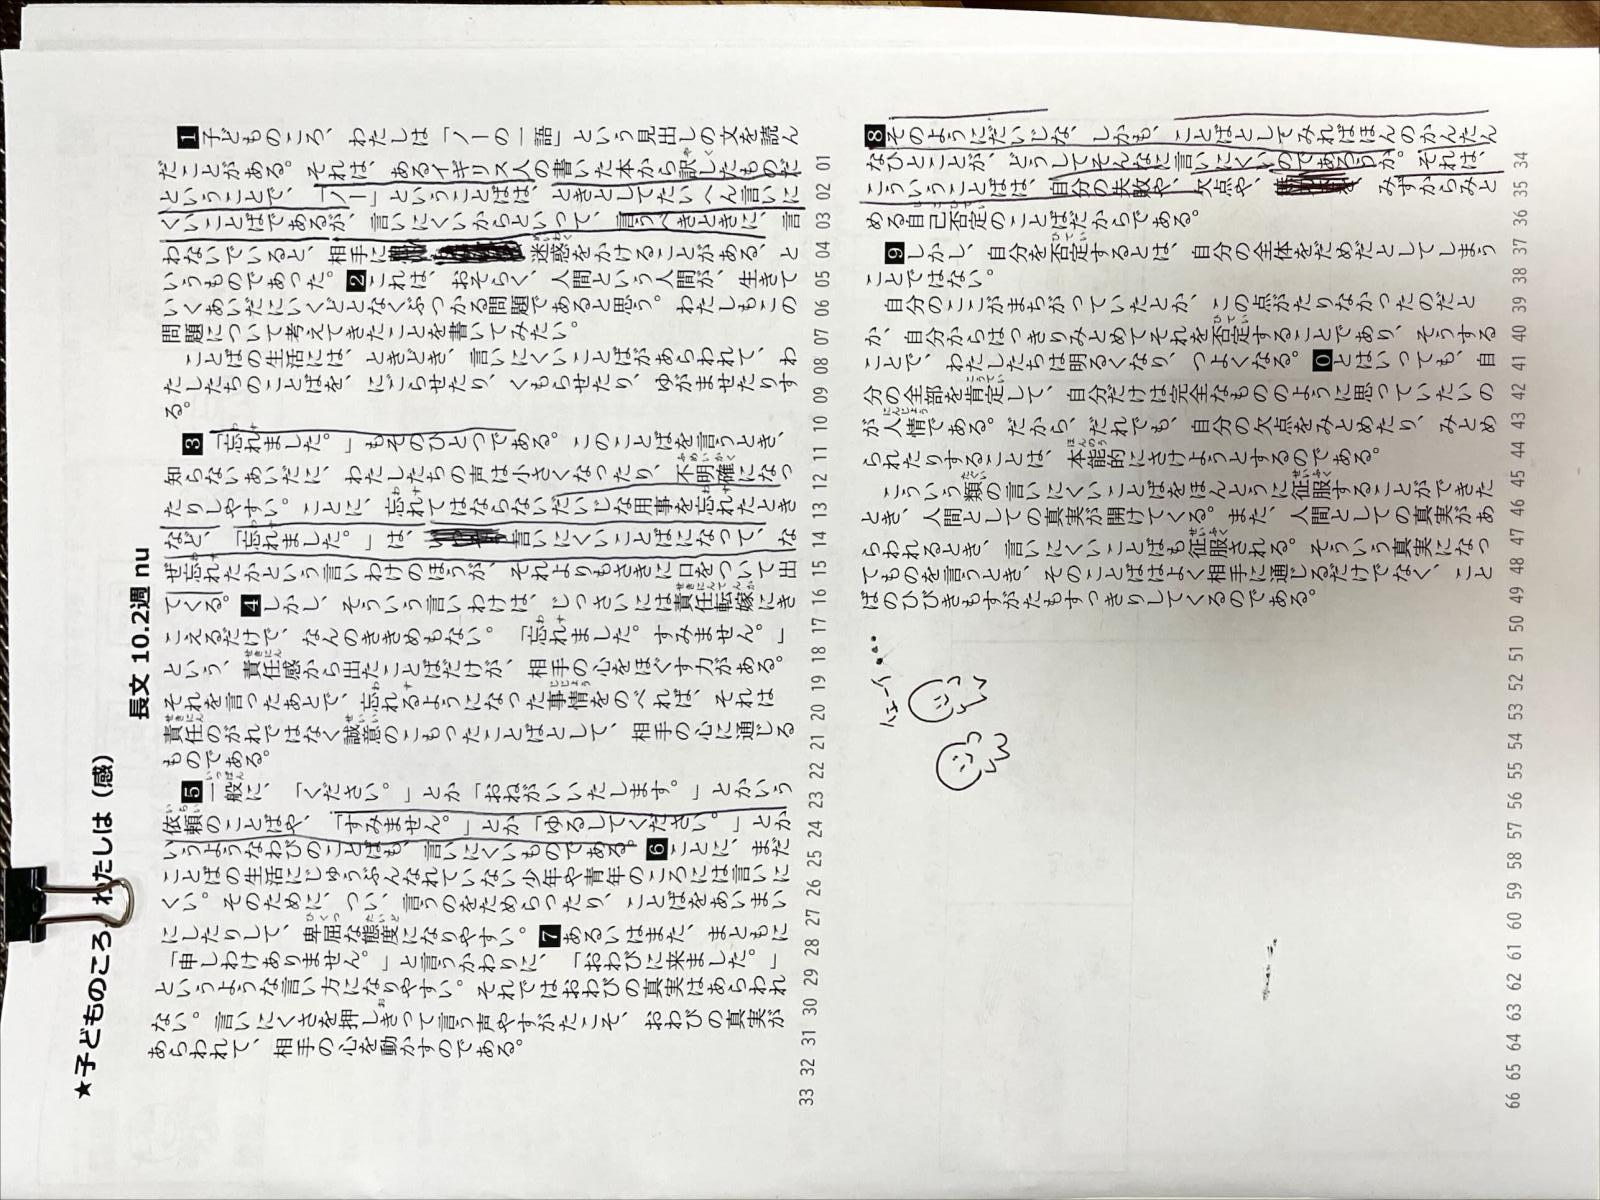 ★子どものころ、わたしは（感）
長文 10.2週 nu
1子どものころ、わたしは「ノーの一語」という見出しの文を読ん
だことがある。それは、あるイギリス人の書いた本から訳したものだ
ということで、「ノー」ということばは、ときとしてたいへん言いに
くいことばであるが、言いにくいからといって、言うべきときに、言
わないでいると、相手に迷惑をかけることがある、と
いうものであった。2これは、おそらく、人間という人間が、生きて
いくあいだにいくどとなくぶつかる問題であると思う。わたしもこの
問題について考えてきたことを書いてみたい。
ことばの生活には、ときどき、言いにくいことばがあらわれて、わ
たしたちのことばを、にごらせたり、くもらせたり、ゆがませたりす
る。
3「忘れました。」もそのひとつである。このことばを言うとき、
知らないあいだに、わたしたちの声は小さくなったり、不明確になっ
たりしやすい。ことに、忘れてはならないだいじな用事を忘れたとき
など、「忘れました。」は、言いにくいことばになって、な
ぜ忘れたかという言いわけのほうが、それよりもさきに口をついて出
てくる。4しかし、そういう言いわけは、じっさいには責任転嫁にき
こえるだけで、なんのききめもない。「忘れました。すみません。」
という、責任感から出たことばだけが、相手の心をほぐす力がある。
それを言ったあとで、忘れるようになった事情をのべれば、それは
責任のがれではなく誠意のこもったことばとして、相手の心に通じる
ものである。
5一般に、「ください。」とか「おねがいいたします。」とかいう
依頼のことばや、「すみません。」とか「ゆるしてください。」とか
いうようなわびのことばも、言いにくいものである。6ことに、まだ
ことばの生活にじゅうぶんなれていない少年や青年のころには言いに
くい。そのために、つい、言うのをためらったり、ことばをあいまい
にしたりして、卑屈な態度になりやすい。7あるいはまた、まともに
「申しわけありません。」と言うかわりに、「おわびに来ました。」
というような言い方になりやすい。それではおわびの真実はあらわれ
ない。言いにくさを押しきって言う声やすがたこそ、おわびの真実が
あらわれて、相手の心を動かすのである。
01 02 03 04 05 06 07 08 09 10 11 12 13 14 15 16 17 18 19 20 21 22 23 24 25 26 27 28 29 30 31 32 33
8そのようにだいじな、しかも、ことばとしてみればほんのかんたん
なひとことが、どうしてそんなに言いにくいのであろうか。それは、
こういうことばは、自分の失敗や、欠点や、みずからみと
める自己否定のことばだからである。
9しかし、自分を否定するとは、自分の全体をだめだとしてしまう
ことではない。
自分のここがまちがっていたとか、この点がたりなかったのだと
か、自分からはっきりみとめてそれを否定することであり、そうする
ことで、わたしたちは明るくなり、つよくなる。0とはいっても、自
分の全部を肯定して、自分だけは完全なもののように思っていたいの
が人情である。だから、だれでも、自分の欠点をみとめたり、みとめ
られたりすることは、本能的にさけようとするのである。
こういう類の言いにくいことばをほんとうに征服することができた
とき、人間としての真実が開けてくる。また、人間としての真実があ
らわれるとき、言いにくいことばも征服される。そういう真実になっ
てものを言うとき、そのことばはよく相手に通じるだけでなく、こと
ばのひびきもすがたもすっきりしてくるのである。
34 35 36 37 38 39 40 41 42 43 44 45 46 47 48 49 50 51 52 53 54 55 56 57 58 59 60 61 62 63 64 65 66